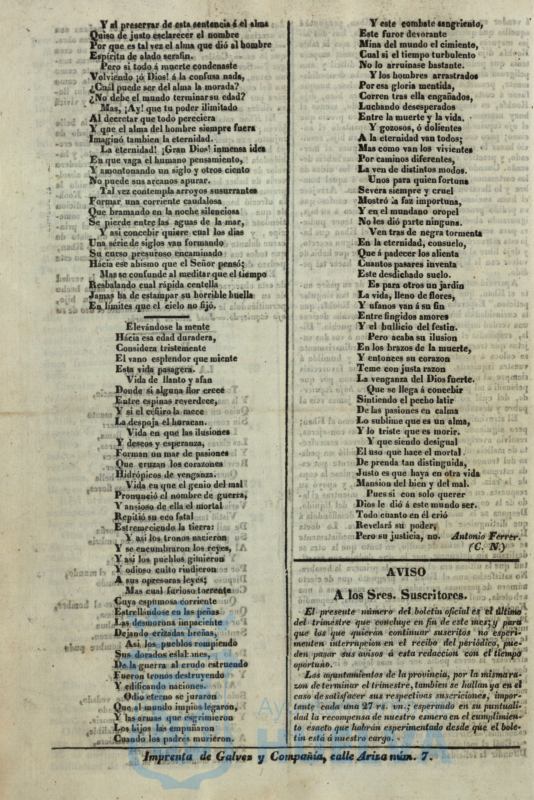 Y al preservar de esta sentencia á el alma
Quiso de justo esclarecer el nombre
Por que es tal vez el alma que dió al hombre
Espíritu de alado serafin.
Pero si todo á muerte condenaste
Volviendo ¡ó Dios! á la confusa nada,
¿Cuál puede ser del alma la morada?
¿No debe el mundo terminar su edad?
Mas, ¡Ay! que tu poder ilimitado
Al decretar que todo pereciera
Y que el alma del hombre siempre fuera
Imaginó tambien la eternidad.
La eternidad! ¡Gran Dios! inmensa idea
En que vaga el humano pensamiento,
Y amontonando un siglo y otros ciento
No puede sus arcanos apurar.
Tal vez contempla arroyos susurrantes
Formar una corriente caudalosa
Que bramando en la noche silenciosa
Se pierde entre las aguas de la mar,
Y asi concebir quiere cual los dias
Una série de siglos van formando
Su curso presuroso encaminado
Hácia ese abismo que el Señor pensó;
Mas se confunde al meditar que el tiempo
Resbalando cual rápida centella
Jamas ha de estampar su horrible huella
En límites que el cielo no fijó.
Elevándose la mente
Hácia esa edad duradera,
Considera tristemente
El vano esplendor que miente
Esta vida pasagera.
Vida de llanto y afan
Donde si alguna flor crece
Entre espinas reverdece,
Y si el céfiro la mece
La despoja el huracan.
Vida en que las ilusiones
Y deseos y esperanza,
Forman un mar de pasiones
Que cruzan los corazones
Hidrópicos de venganza.
Vida en que el genio del mal
Pronunció el nombre de guerra,
Y ansioso de ella el mortal
Repitió su eco fatal
Estremeciendo la tierra:
Y asi los tronos nacieron
Y se encumbraron los reyes,
Y asi los pueblos gimieron
Y odioso culto rindieron
A sus opresoras leyes;
Mas cual furioso torrente
Cuya espumosa corriente
Estrellándose en las peñas
Las desmorona impaciente
Dejando erizadas breñas,
Asi los pueblos rompiendo
Sus dorados eslabones,
De la guerra al crudo estruendo
Fueron tronos destruyendo
Y edificando naciones.
Odio eterno se juraron
Que al mundo impios legaron,
Y las armas que esgrimieron
Los hijos las empuñaron
Cuando los padres murieron.
Y este combate sangriento,
Este furor devorante
Mina del mundo el cimiento,
Cual si el tiempo turbulento
No lo arruinase bastante.
Y los hombres arrastrados
Por esa gloria mentida,
Corren tras ella engañados,
Luchando desesperados
Entre la muerte y la vida.
Y gozosos, ó dolientes
A la eternidad van todos;
Mas como van los vivientes
Por caminos diferentes,
La ven de distintos modos.
Unos para quien fortuna
Severa siempre y cruel
Mostró la faz importuna,
Y en el mundano oropel
No les dió parte ninguna.
Ven tras de negra tormenta
En la eternidad, consuelo,
Que á padecer los alienta
Cuantos pasares inventa
Este desdichado suelo.
Es para otros un jardin
La vida, lleno de flores,
Y ufanos van á su fin
Entre fingidos amores
Y el bullicio del festin.
Pero acaba su ilusion
En los brazos de la muerte,
Y entonces su corazon
Teme con justa razon
La venganza del Dios fuerte.
Que se llega á concebir
Sintiendo el pecho latir
De las pasiones en calma
Lo sublime que es un alma,
Y lo triste que es morir.
Y que siendo desigual
El uso que hace el mortal
De prenda tan distinguida,
Justo es que haya en otra vida
Mansion del bien y del mal.
Pues si con solo querer
Dios le dió á este mundo ser.
Todo cuanto en él crió
Revelará su poder,
Pero su justicia, no. Antonio Ferrer.
(C. N.)
AVISO
A los Sres. Suscritores.
El presente número del boletin oficial es el último
del trimestre que concluye en fin de este mes; y para
que los que quieran continuar suscritos no esperi-
menten interrupcion en el recibo del periódico, pue-
den pasar sus avisos á esta redaccion con el tiempo
oportuno.
Los ayuntamientos de la provincia, por la misma ra-
zon de terminar el trimestre, tambien se hallan ya en el
caso de satisfacer sus respectivas suscriciones, impor-
tante cada una 27 rs. vn.; esperando en su puntuali-
dad la recompensa de nuestro esmero en el cumplimien-
to esacto que habrán esperimentado desde que el bole-
tin está á nuestro cargo.
Imprenta de Galvez y Compañía, calle Ariza núm. 7.